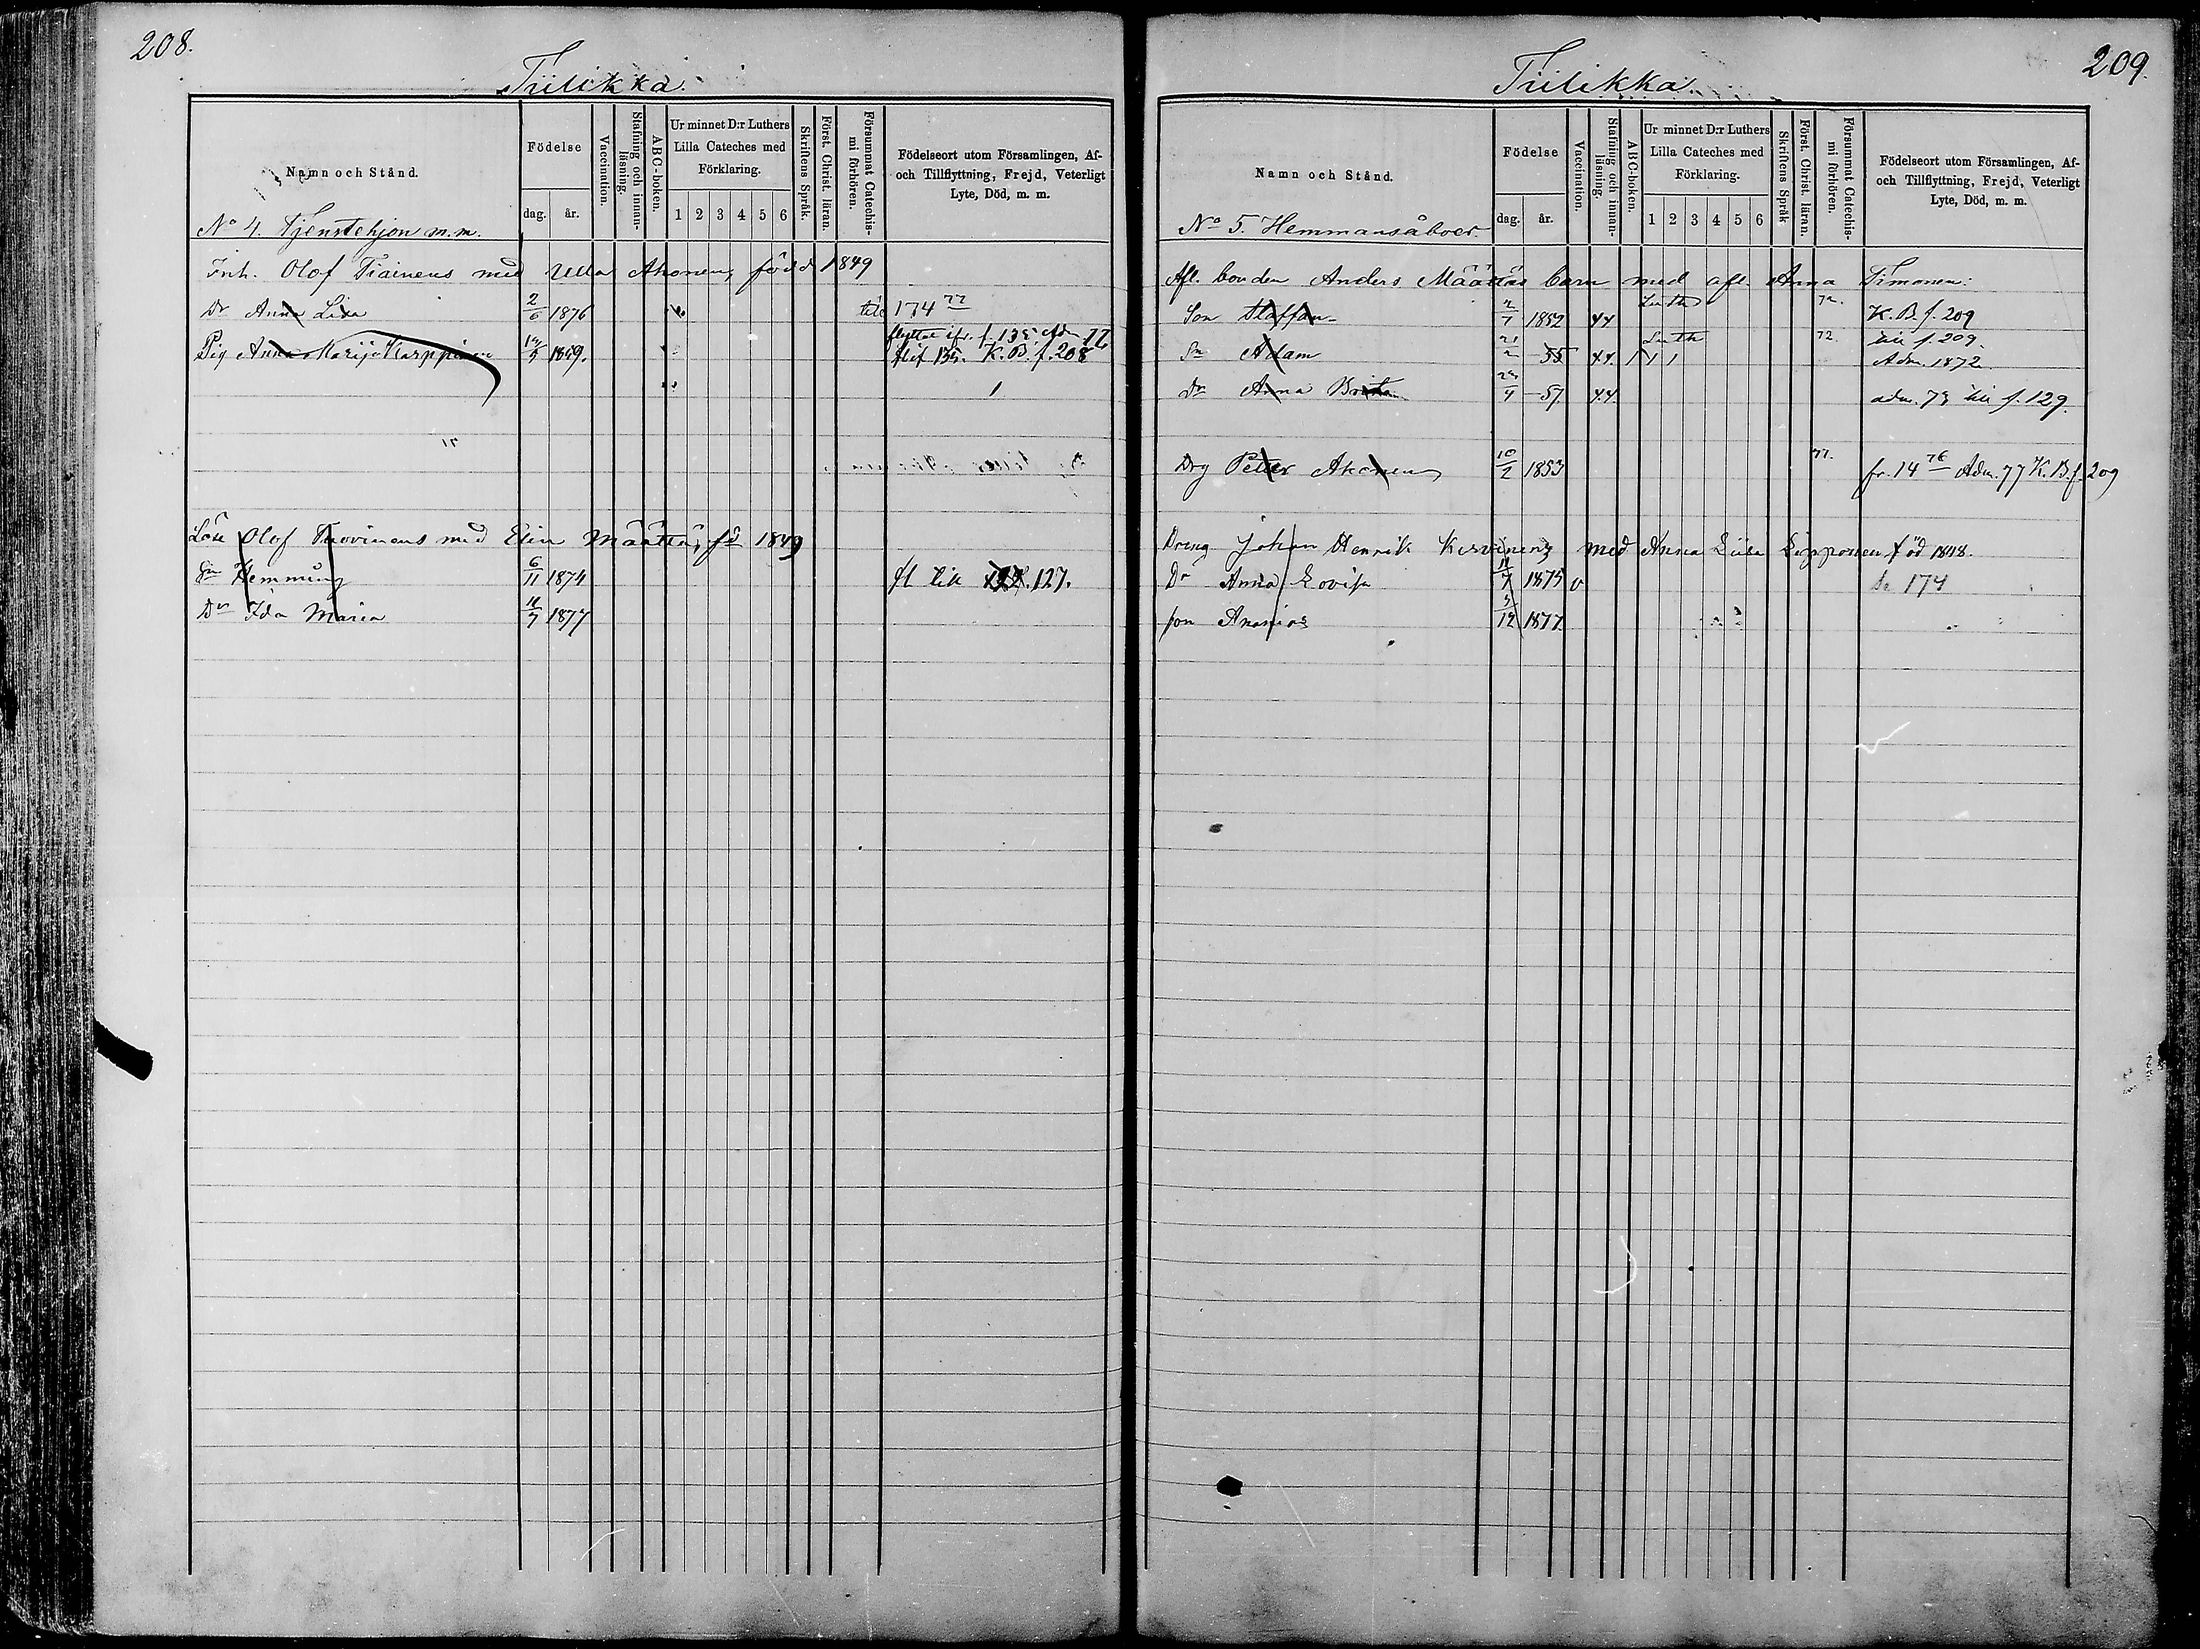 208.
Tiilikka.
Namn och Stånd.
Födelse
dag. år.
Vaccination.
Stafning och innanläsning.
ABC-boken.
Ur minnet D:r Luthers Lilla Cateches med Förklaring.
1 2 3 4 5 6
Skriftens Språk.
Först. Christ. läran.
Försummat Catechismi förhören.
Födelseort utom Församlingen, Af- och Tillflyttning, Frejd, Veterligt Lyte, Död, m. m.
No 4. Tjenstehjon m.m.
Inh. Olof Tiainens med Ulla Akonen, född 1849
Dr Anna Lisa 2/6 1876 till 174 77
Pig Anna Maria Karppinen 1859. K. B. f. 208
Olof med Elin Määttä, fd 1849
Sn Hemming 6/11 1874 fl till 127.
Dr Ida Maria 1877
209.
Tiilikka.
Namn och Stånd.
Födelse
dag. år.
Vaccination.
Stafning och innanläsning.
ABC-boken.
Ur minnet D:r Luthers Lilla Cateches med Förklaring.
1 2 3 4 5 6
Skriftens Språk
Först. Christ. läran.
Försummat Catechismi förhören.
Födelseort utom Församlingen, Af- och Tillflyttning, Frejd, Veterligt Lyte, Död, m. m.
No 5. Hemmansåboer.
Afl. bonden Anders Määttäs barn med afl. Anna Timonen:
Son Staffan 1852 44 Luth 72. K. B. f. 209
Sn Adam 55 44. 1 1 1 Luth 72. f. 209. Adm. 1872
Dr Anna Brita 57 44. adm. 73 f. 129.
Drg Petter Akonen 10/2 1853 77. fr. 14 76 Adm. 77 K. B. f. 209
Dreng Johan Henrik med Anna Liisa Lipponen född 1848.
Dr Anna Lovisa 1875 v 174
son Ananias 5/12 1877.